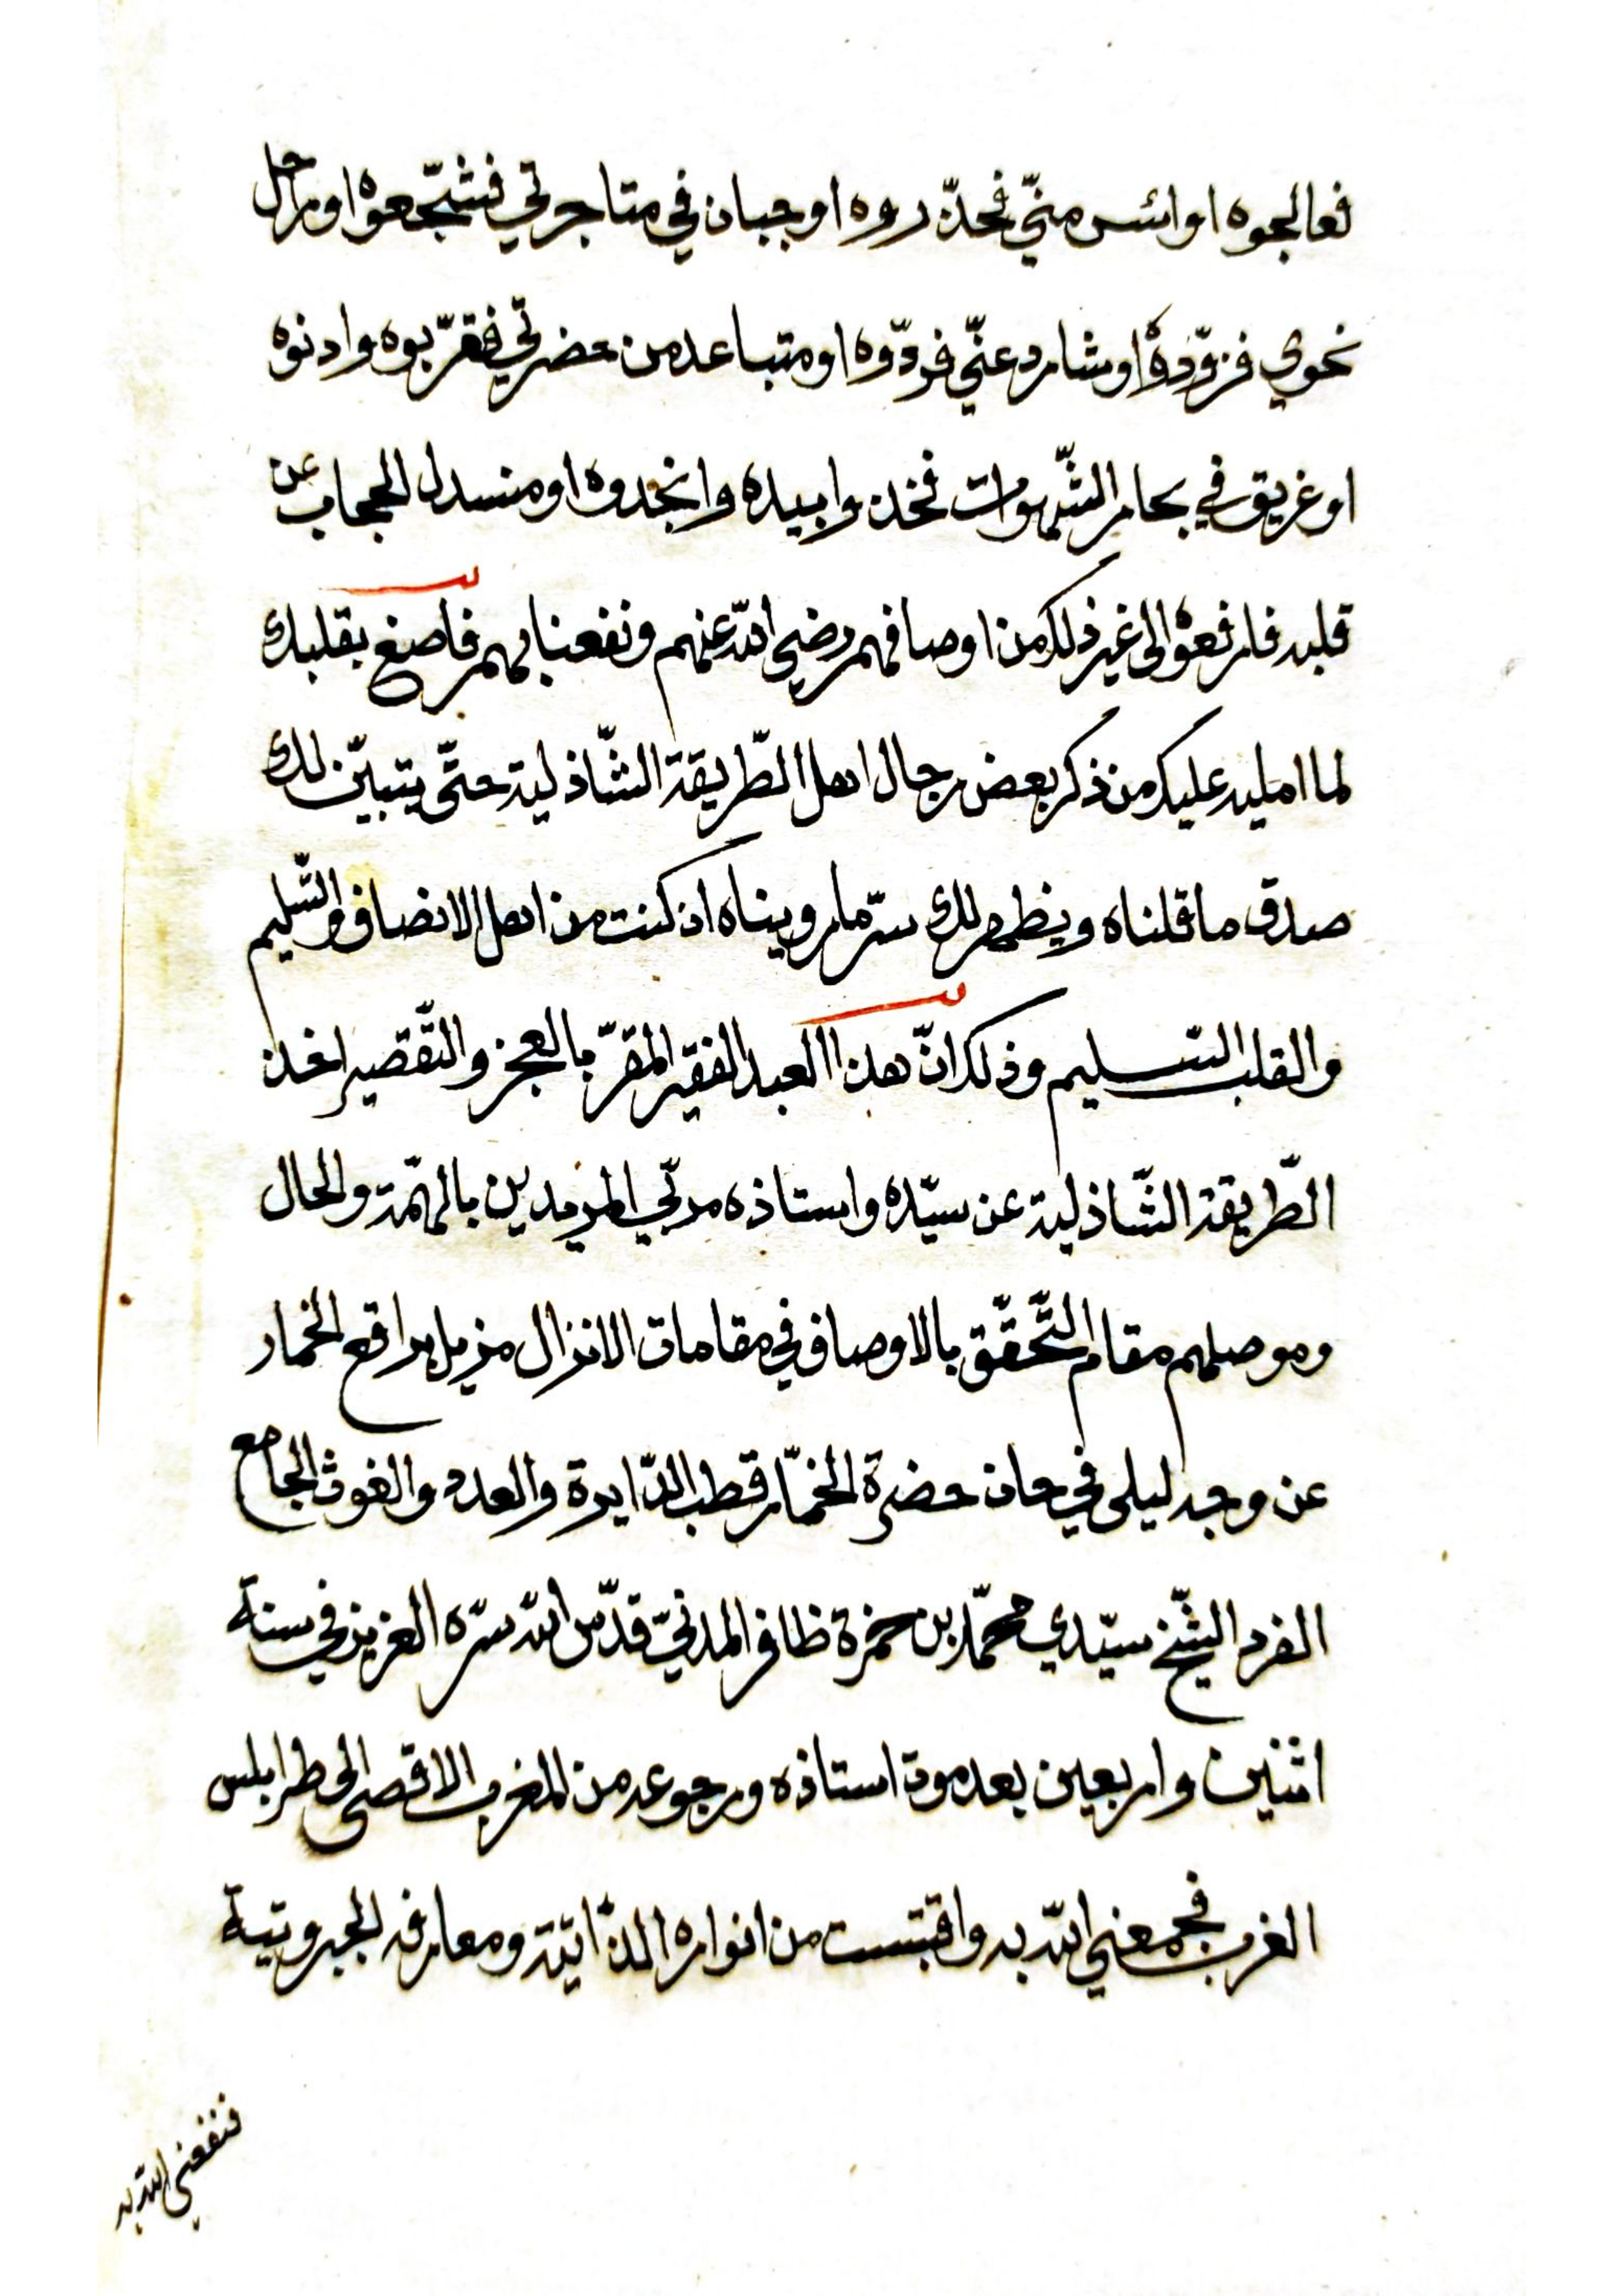 فعالجوه او ائس منّي فحذّروه او جبان في متاجرتي فشجّعوه او راحل
نحوي فزوّدوه او شارد عنّي فردّوه او متباعد من حضرتي فقرّبوه وادنوه
او غريق في بحار الشّهوات فخذوا بيده وانجدوه او منسدل الحجاب عن
قلبه فارفعوه الى غير ذلك من اوصافهم رضي الله عنهم ونفعنا بهم فاصغ بقلبك
لما امليه عليك من ذكر بعض رجال اهل الطّريقة الشّاذلية حتّى يتبيّن لك
صدق ما قلناه ويظهر لك سرّ ما رويناه اذ كنت من اهل الانصاف والتّسليم
والقلب السليم وذلك انّ هذا العبد الفقير المقرّ بالعجز والتّقصير اخذ
الطّريقة الشّاذلية عن سيّده واستاذه مربّي المريدين بالهمّة والحال
وموصلهم مقام التّحقّق بالاوصاف في مقامات الانزال مزيل براقع الخمار
عن وجه ليلى في حان حضرة الخمّار قطب الدّايرة والعدد والغوث الجامع
الفرد الشّيخ سيّدي محمّد بن حمزة ظافر المدنيّ قدّس الله سرّه العزيز في سنة
اثنين واربعين بعد موت استاذه ورجوعه من المغرب الاقصى الى طرابلس
الغرب فجمعني الله به واقتبست من انواره الذّاتيّة ومعارفه الجبروتية
فنفعني الله به